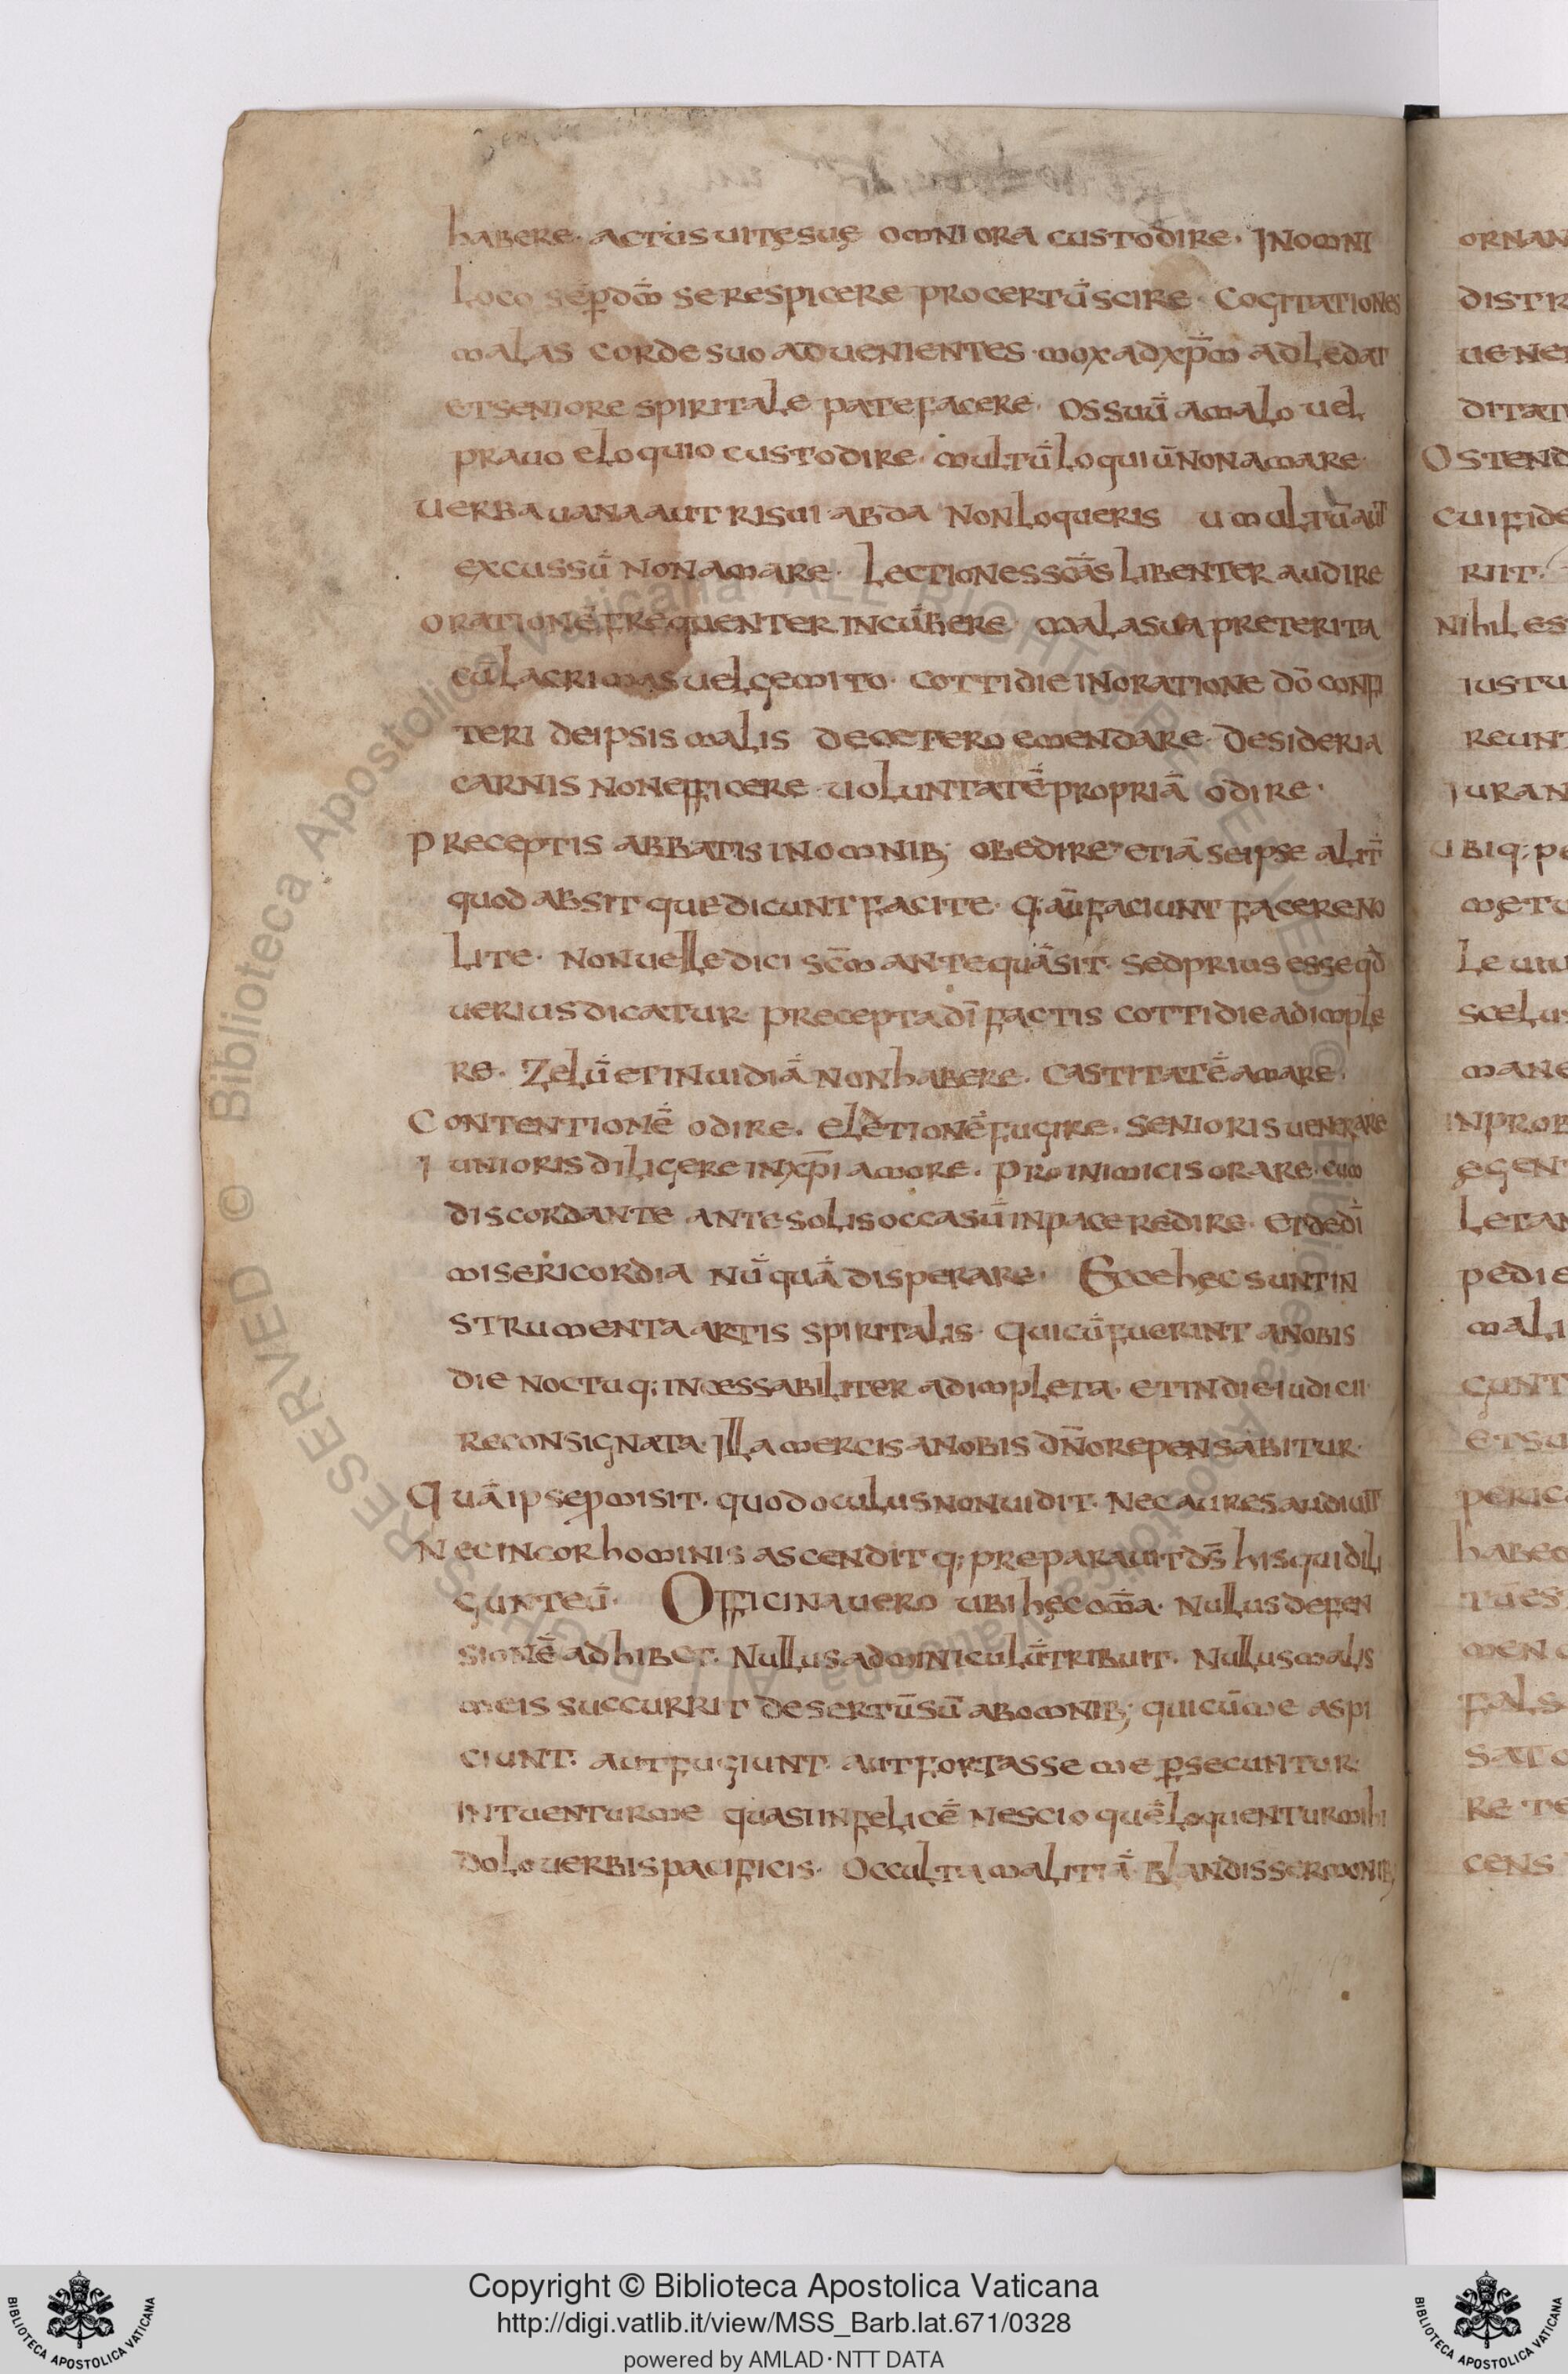 habere· actus uitę suę omni ora custodire· In omni
loco sēp dōm se respicere pro certū scire· Cogitationes
malas corde suo aduenientes· mox ad xp̄m adledat
et seniore spiritale patefacere· Os suū a malo uel
prauo eloquio custodire· multū loquiū non amare·
Uerba uana aut risui abda non loqueris umultū aut
excussū non amare· Lectiones scās libenter audire
Orationē frequenter incūbere· mala sua preterita
cū lacrimas uel gemito· cottidie in oratione dō confi
teri de ipsis malis de cetero emendare· Desideria
carnis non efficere· uoluntatē propriā odire·
Preceptis abbatis in omnib; obedire· etiā se ipse alit̄
quod absit que dicunt facite· q; aū faciunt facere no
lite· non uelle dici scm̄ antequā sit· sed prius esse qd̄
uerius dicatur· Precepta dī factis cottidie adimple
re· Zelū et inuidiā non habere· castitatē amare·
Contentionē odire· elētionē fugire· senioris uenerare
Iunioris diligere in xp̄i amore· Pro inimicis orare· cum
discordante ante solis occasū in pace redire· Et de dī
misericordia nūquā disperare· Ecce hec sunt in
strumenta artis spiritalis· Qui cū fuerint a nobis
die noctuq; incessabiliter adimpleta· et in die iudicii
reconsignata· Illa mercis a nobis dn̄o repensabitur·
Quā ipse pmisit· quod oculus non uidit· Nec aures audiuit
Nec in cor hominis ascendit q; preparauit ds̄ his qui dili
gunt eū· Officina uero ubi hęc om̄a· Nullus defen
sionē adhibet· Nullus adminiculū tribuit· Nullus malis
meis succurrit desertū sū ab omnib; quicūme aspi
ciunt· aut fugiunt· aut fortasse me psecuntur·
Intuentur me quasi infelicē nescio quē loquentur mihi
dolo uerbis pacificis· Occulta malitiā blandis sermonib;
ornan
distr
uener
ditat
Ostend
cui fide
riit·
Nihil es
iustu
reunt
iuran
Ubiq; pe
metu
le uiu
scelus
mane
inprob
egent
letan
pedie
mali
gunt
et su
peric
habeo
tū es
men
fals
sat
re te
cens
Biblioteca Apostolica Vaticana ALL RIGHTS RESERVED ©
Biblioteca Apostolica Vaticana ALL RIGHTS RESERVED ©
Copyright © Biblioteca Apostolica Vaticana
http://digi.vatlib.it/view/MSS_Barb.lat.671/0328
powered by AMLAD·NTT DATA
BIBLIOTECA APOSTOLICA VATICANA
BIBLIOTECA APOSTOLICA VATICANA